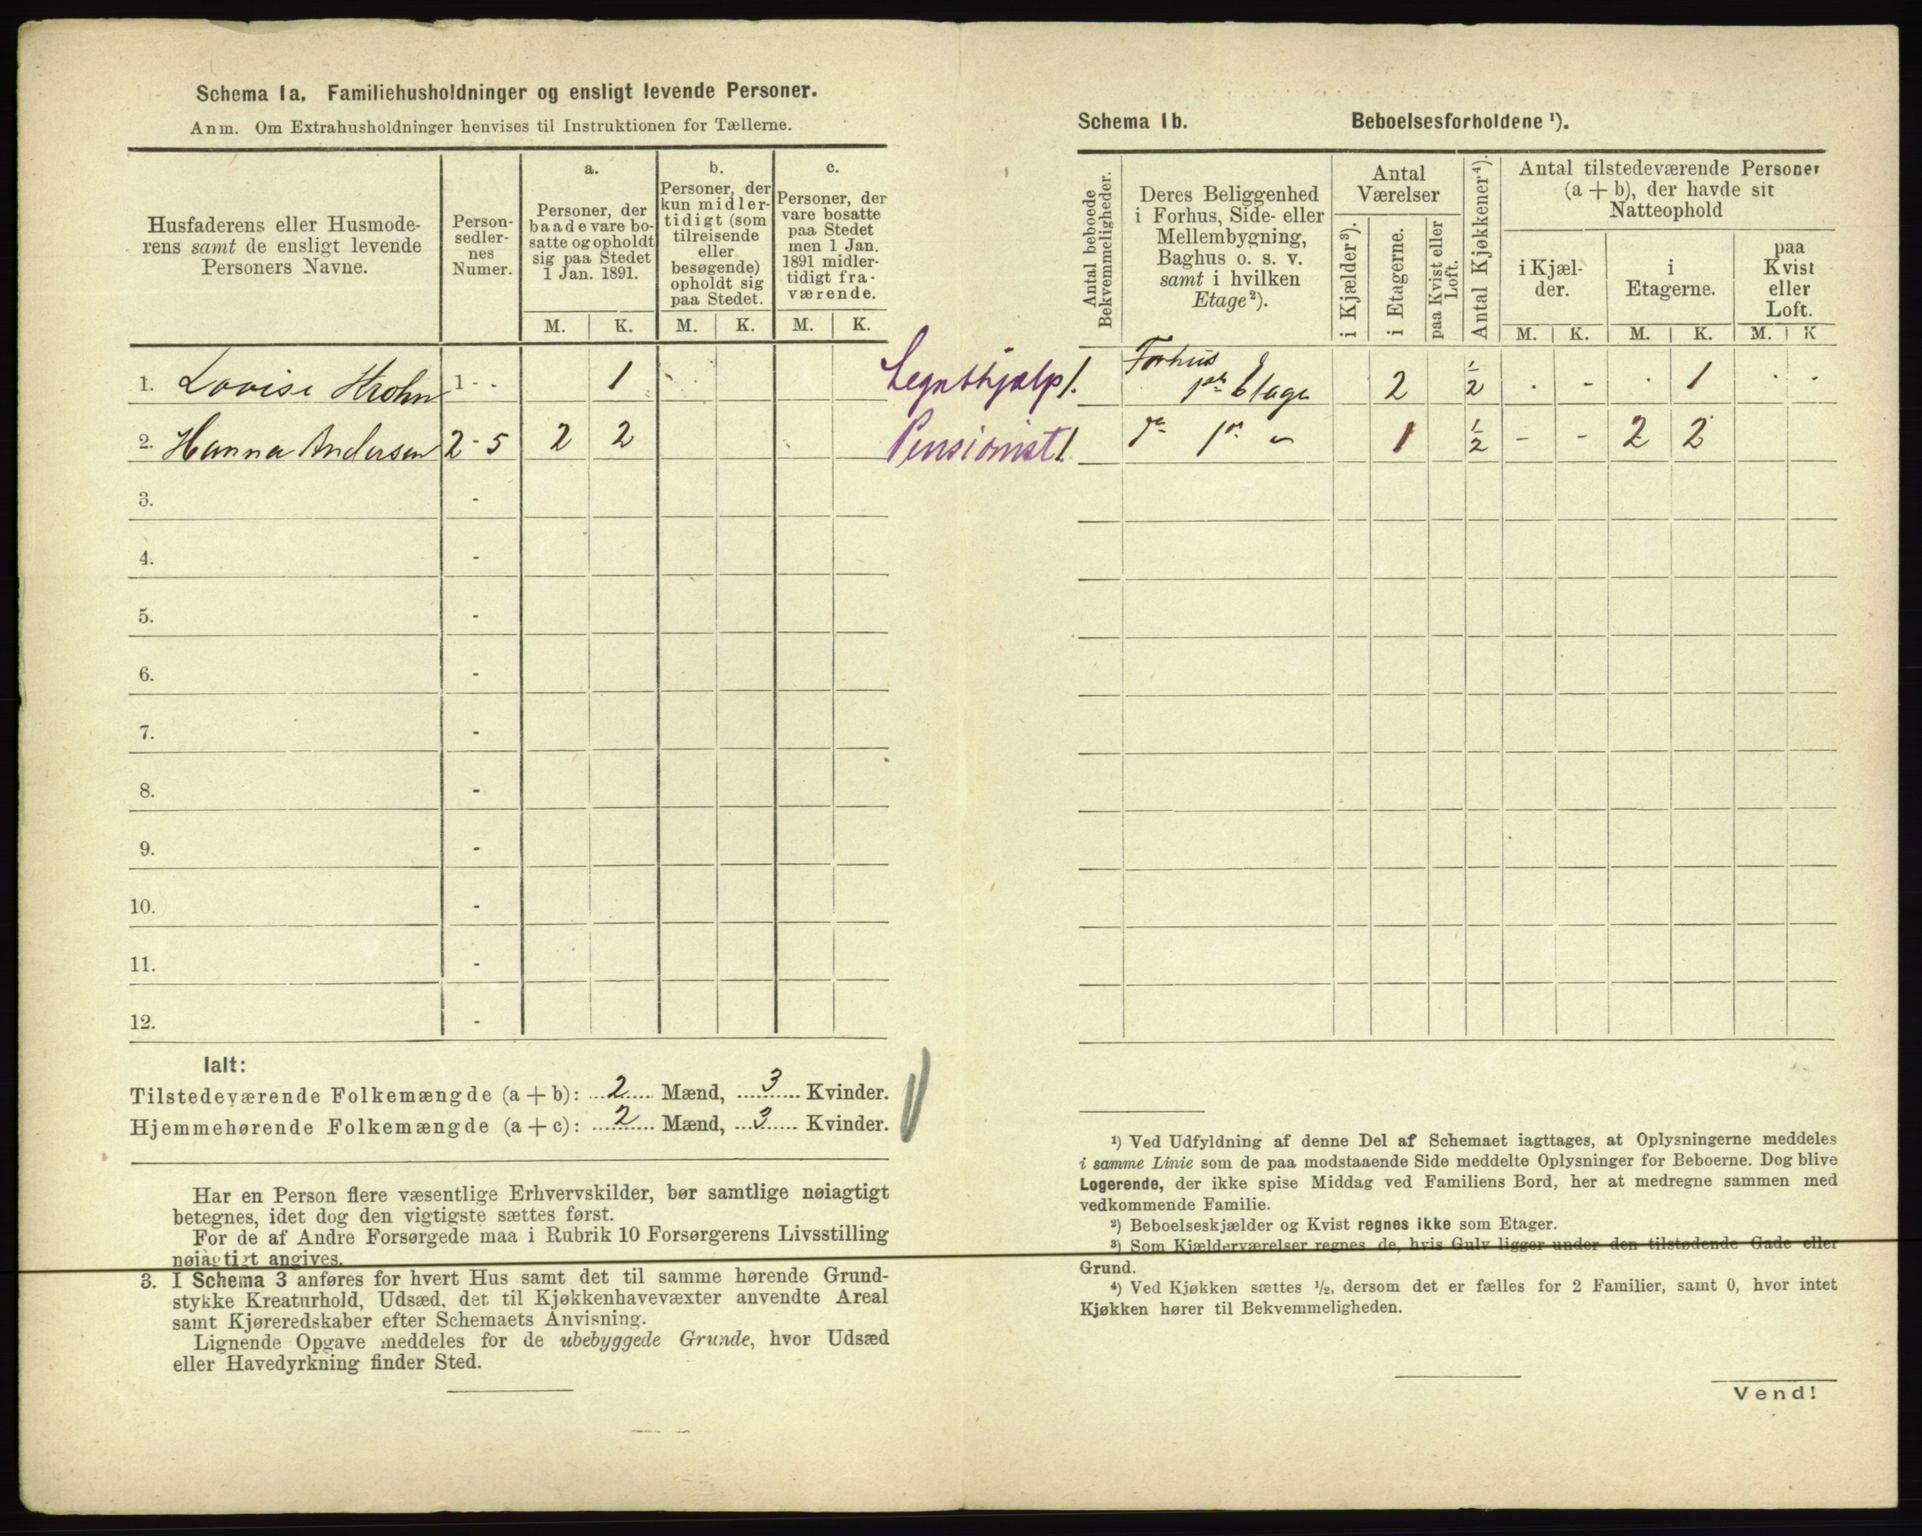 Schema 1a. Familiehusholdninger og ensligt levende Personer.
Anm. Om Extrahusholdninger henvises til Instruktionen for Tællerne.
Husfaderens eller Husmode-
rens samt de ensligt levende
Personers Navne.
Person-
sedler-
nes
Numer.
a.
Personer, der
baade vare bo-
satte og opholdt
sig paa Stedet
1 Jan. 1891.
b.
Personer, der
kun midler-
tidigt (som
tilreisende
eller
besøgende)
opholdt sig
paa Stedet.
c.
Personer, der
vare bosatte
paa Stedet
men 1 Jan.
1891 midler-
tidigt fra-
værende.
M. K. M. K. M. K.
1. Lovise Krohn 1 - 1
2. Hanna Andersen 2 - 5 2 2
3. -
4. -
5. -
6. -
7. -
8. -
9. -
10. -
11. -
12. -
Ialt:
Tilstedeværende Folkemængde (a + b): 2 Mænd, 3 Kvinder.
Hjemmehørende Folkemængde (a + c): 2 Mænd, 3 Kvinder.
Har en Person flere væsentlige Erhvervskilder, bør samtlige nøiagtigt
betegnes, idet dog den vigtigste sættes først.
For de af Andre Forsørgede maa i Rubrik 10 Forsørgerens Livsstilling
nøiagtigt angives.
3. I Schema 3 anføres for hvert Hus samt det til samme hørende Grund-
stykke Kreaturhold, Udsæd, det til Kjøkkenhavevæxter anvendte Areal
samt Kjøreredskaber efter Schemaets Anvisning.
Lignende Opgave meddeles for de ubebyggede Grunde, hvor Udsæd
eller Havedyrkning finder Sted.
Schema 1b. Beboelsesforholdene ¹).
Antal beboede
Bekvemmeligheder.
Deres Beliggenhed
i Forhus, Side- eller
Mellembygning,
Baghus o. s. v.
samt i hvilken
Etage²).
Antal
Værelser
i Kjælder³).
i Etagerne.
paa Kvist eller
Loft.
Antal Kjøkkener⁴).
Antal tilstedeværende Personer
(a + b), der havde sit
Natteophold
i Kjæl-
der.
i
Etagerne.
paa
Kvist
eller
Loft.
M. K. M. K. M. K
Legatshjælp 1. Forhus
1ste Etage 2 ½ . - . 1 . .
Pensionist 1. 1 ½ - - 2 2
¹) Ved Udfyldning af denne Del af Schemaet iagttages, at Oplysningerne meddeles
i samme Linie som de paa modstaaende Side meddelte Oplysninger for Beboerne. Dog blive
Logerende, der ikke spise Middag ved Familiens Bord, her at medregne sammen med
vedkommende Familie.
²) Beboelseskjælder og Kvist regnes ikke som Etager.
³) Som Kjælderværelser regnes de, hvis Gulv ligger under den tilstødende Gade eller
Grund.
⁴) Ved Kjøkken sættes ½, dersom det er fælles for 2 Familier, samt 0, hvor intet
Kjøkken hører til Bekvemmeligheden.
Vend!